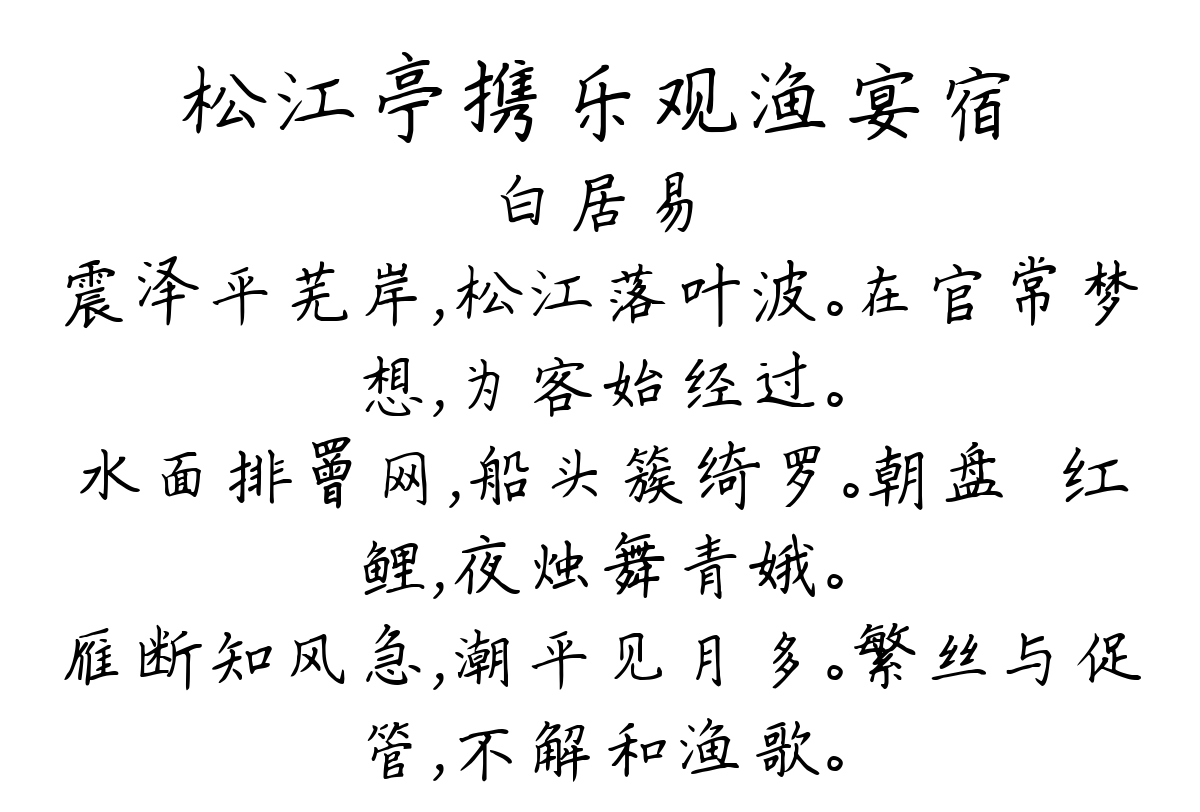 松江亭携乐观渔宴宿
白居易
震泽平芜岸,松江落叶波。在官常梦
想,为客始经过。
水面排罾网,船头簇绮罗。朝盘 红
鲤,夜烛舞青娥。
雁断知风急,潮平见月多。繁丝与促
管,不解和渔歌。